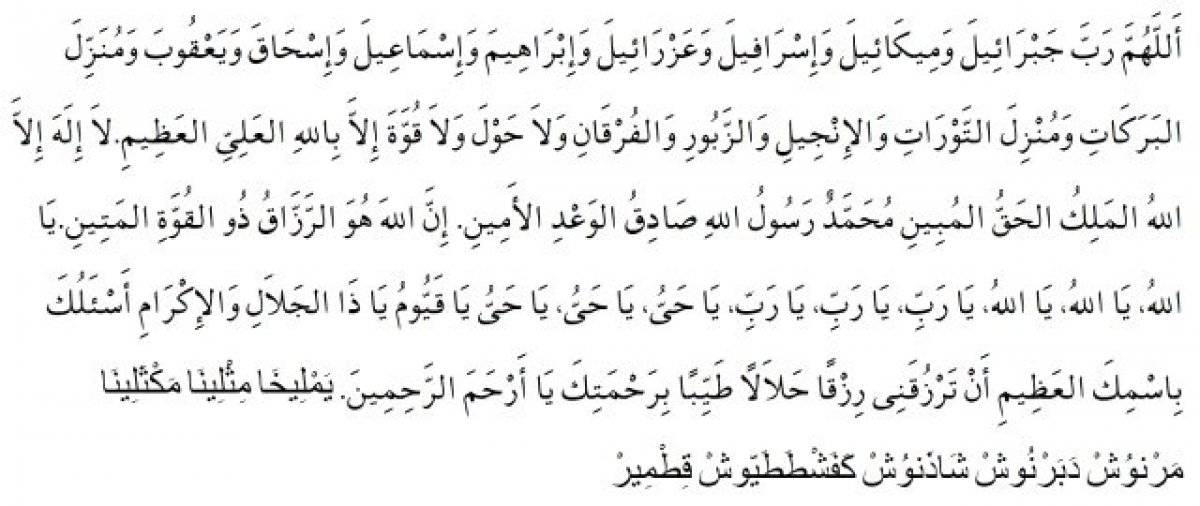 أَللَّهُمَّ رَبَّ جَبْرَائِيلَ وَمِيكَائِيلَ وَإِسْرَافِيلَ وَعَزْرَائِيلَ وَإِبْرَاهِيمَ وَإِسْمَاعِيلَ وَإِسْحَاقَ وَيَعْقُوبَ وَمُنَزِّلَ
البَرَكَاتِ وَمُنْزِلَ التَّوْرَاتِ وَالإِنْجِيلِ وَالزَّبُورِ وَالفُرْقَانِ وَلاَ حَوْلَ وَلاَ قُوَّةَ إِلاَّ بِاللهِ العَلِيِّ العَظِيمِ.لاَ إِلَهَ إِلاَّ
اللهُ المَلِكُ الحَقُّ المُبِينِ مُحَمَّدٌ رَسُولُ اللهِ صَادِقُ الوَعْدِ الأَمِينِ. إِنَّ اللهَ هُوَ الرَّزَّاقُ ذُو القُوَّةِ المَتِينِ.يَا
اللهُ، يَا اللهُ، يَا اللهُ، يَا رَبِّ، يَا رَبِّ، يَا رَبِّ، يَا حَىُّ، يَا حَىُّ، يَا حَىُّ يَا قَيُّومُ يَا ذَا الجَلاَلِ وَالإِكْرَامِ أَسْئَلُكَ
بِاسْمِكَ العَظِيمِ أَنْ تَرْزُقَنِى رِزْقًا حَلاَلًا طَيِّبًا بِرَحْمَتِكَ يَا أَرْحَمَ الرَّحِمِينَ. يَمْلِيخَا مِثْلِينَا مَكْثَلِينَا
مَرْنوُشْ دَبَرْنُوشْ شَاذَنوُشْ كَفَشْطَطَيّوشْ قِطْمِيرْ